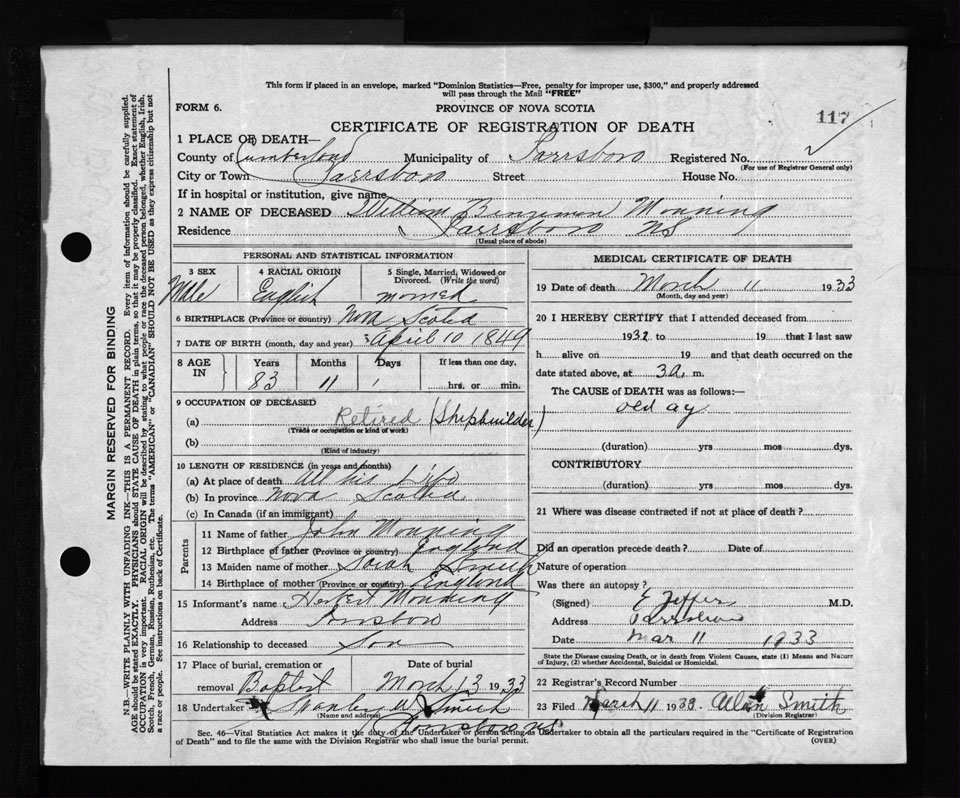 This form if placed in an envelope, marked "Dominion Statistics—Free, penalty for improper use, $300," and properly addressed
will pass through the Mail "FREE"
FORM 6.
PROVINCE OF NOVA SCOTIA
117
CERTIFICATE OF REGISTRATION OF DEATH
1 PLACE OF DEATH—
County of Cumberland Municipality of Parrsboro Registered No.
(For use of Registrar General only)
City or Town Parrsboro Street House No.
If in hospital or institution, give name
2 NAME OF DECEASED William Benjimen Monning
Residence Parrsboro NS
(Usual place of abode)
PERSONAL AND STATISTICAL INFORMATION
3 SEX 4 RACIAL ORIGIN 5 Single, Married, Widowed or Divorced. (Write the word)
Male English married
6 BIRTHPLACE (Province or country) Nova Scotia
7 DATE OF BIRTH (month, day and year) April 10 1849
8 AGE IN Years Months Days If less than one day.
83 11 1 hrs. or min.
9 OCCUPATION OF DECEASED
(a) Retired (Shipbuilder)
(Trade or occupation or kind of work)
(b)
(Kind of industry)
10 LENGTH OF RESIDENCE (in years and months)
(a) At place of death All his Life
(b) In province Nova Scotia
(c) In Canada (if an immigrant)
Parents
11 Name of father John Monning
12 Birthplace of father (Province or country) England
13 Maiden name of mother Sarah Smith
14 Birthplace of mother (Province or country) England
15 Informant's name Herbert Monning
Address Parrsboro
16 Relationship to deceased Son
17 Place of burial, cremation or removal Baptist
Date of burial March 13 1933
18 Undertaker Stanley W Smith
(Name and address) Parrsboro NS
MEDICAL CERTIFICATE OF DEATH
19 Date of death March 11 1933
(Month, day and year)
20 I HEREBY CERTIFY that I attended deceased from
1932 to 19 that I last saw
h alive on 19 and that death occurred on the
date stated above, at 3 a. m.
The CAUSE of DEATH was as follows:
old ag
(duration) yrs mos dys.
CONTRIBUTORY
(duration) yrs mos dys.
21 Where was disease contracted if not at place of death?
Did an operation precede death? Date of
Nature of operation
Was there an autopsy?
(Signed) E Jeffers M.D.
Address Parrsboro
Date Mar 11 1933
State the Disease causing Death, or in death from Violent Causes, state (1) Means and Nature
of Injury, (2) whether Accidental, Suicidal or Homicidal.
22 Registrar's Record Number
23 Filed March 11 1933 Allan Smith
(Division Registrar)
Sec. 46—Vital Statistics Act makes it the duty of the Undertaker or person acting as Undertaker to obtain all the particulars required in the "Certificate of Registration
of Death" and to file the same with the Division Registrar who shall issue the burial permit.
(OVER)
MARGIN RESERVED FOR BINDING
N.B.—WRITE PLAINLY WITH UNFADING INK—THIS IS A PERMANENT RECORD. Every item of information should be carefully supplied.
AGE should be stated EXACTLY. PHYSICIANS should STATE CAUSE OF DEATH in plain terms, so that it may be properly classified. Exact statement of
OCCUPATION is very important. RACIAL ORIGIN will be described by stating to what people or race the deceased person belonged, whether English, Irish,
Scotch, French, German, Russian, Ruthenian, etc. The terms "AMERICAN" or "CANADIAN" SHOULD NOT BE USED as they express citizenship but not
a race or people. See instructions on back of Certificate.